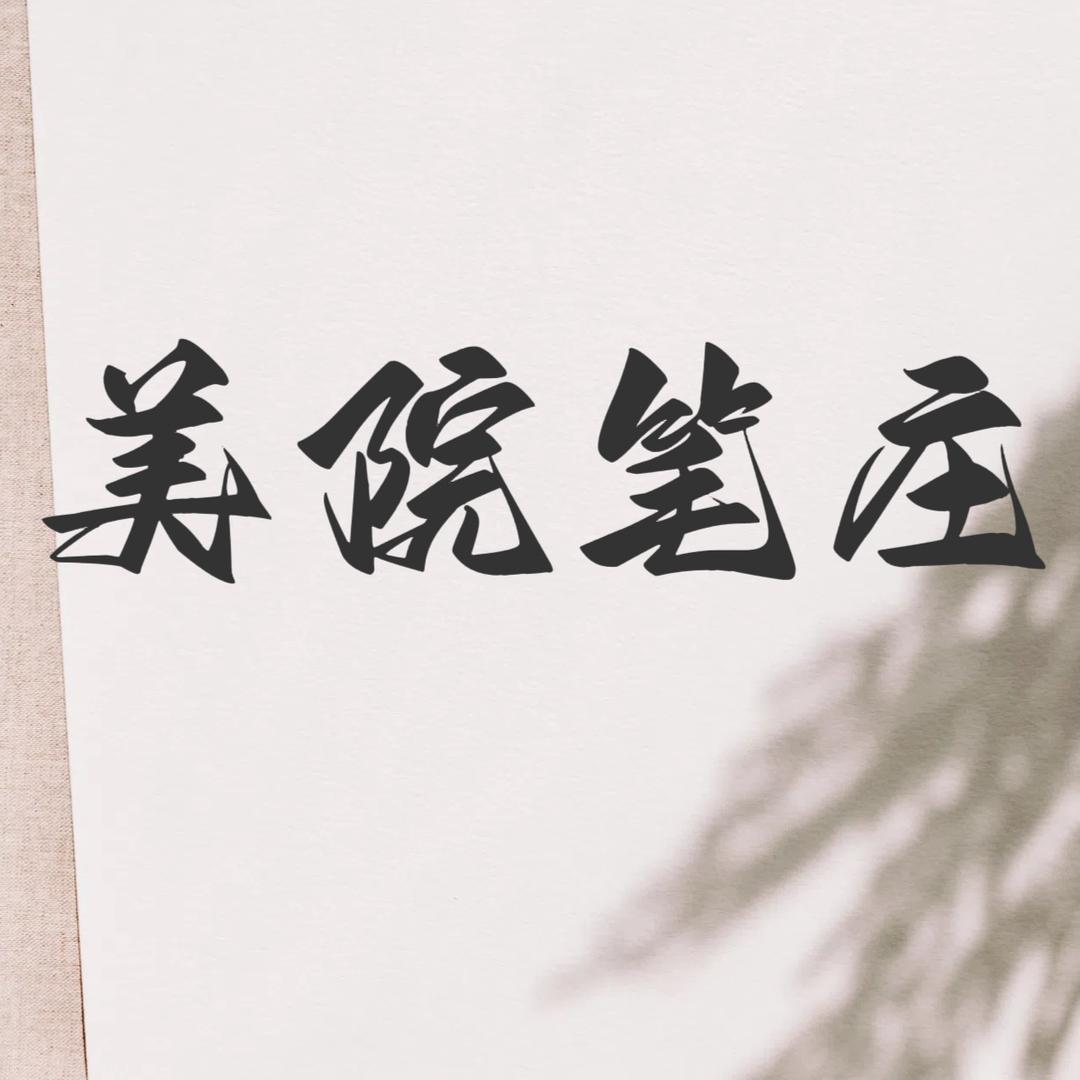 美院笔庄